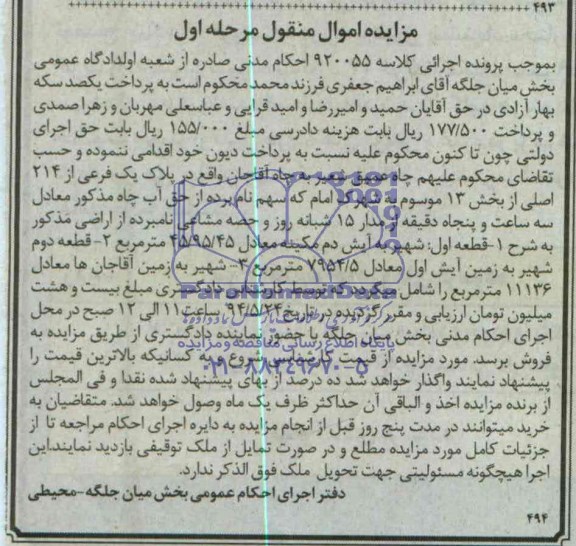 ۴۹۳
مزایده اموال منقول مرحله اول
بموجب پرونده اجرائی کلاسه ۹۲۰۰۵۵ احکام مدنی صادره از شعبه اولدادگاه عمومی
بخش میان جلگه آقای ابراهیم جعفری فرزند محمد محکوم است به پرداخت یکصد سکه
بهار آزادی در حق آقایان حمید و امیررضا و امید قرایی و عباسعلی مهربان و زهرا صمدی
و پرداخت ۱۷۷/۵۰۰ ریال بابت هزینه دادرسی مبلغ ۱۵۵/۰۰۰ ریال بابت حق اجرای
دولتی چون تا کنون محکوم علیه نسبت به پرداخت دیون خود اقدامی ننموده و حسب
تقاضای محکوم علیهم چاه عمیق شهیر به چاه آقاجان واقع در پلاک یک فرعی از ۲۱۴
اصلی از بخش ۱۳ موسوم به شهرک امام که سهم نام برده از حق آب چاه مذکور معادل
سه ساعت و پنجاه دقیقه از مدار ۱۵ شبانه روز و حصه مشاعی نامبرده از اراضی مذکور
به شرح ۱-قطعه اول: شهیر به آیش دم مکینه معادل ۴۵۹۵/۴۵ مترمربع ۲- قطعه دوم
شهیر به زمین آیش اول معادل ۷۹۵۴/۵ مترمربع ۳- شهیر به زمین آقاجان ها معادل
۱۱۱۳۶ مترمربع را شامل میگردد که توسط کارشناس دادگستری مبلغ بیست و هشت
میلیون تومان ارزیابی و مقرر گردیده در تاریخ ۹۴/۵/۲۴ ساعت ۱۱ الی ۱۲ صبح در محل
اجرای احکام مدنی بخش میان جلگه با حضور نماینده دادگستری از طریق مزایده به
فروش برسد. مورد مزایده از قیمت کارشناسی شروع و به کسانیکه بالاترین قیمت را
پیشنهاد نمایند واگذار خواهد شد ده درصد از بهای پیشنهاد شده نقدا و فی المجلس
از برنده مزایده اخذ و الباقی آن حداکثر ظرف یک ماه وصول خواهد شد. متقاضیان به
خرید میتوانند در مدت پنج روز قبل از انجام مزایده به دایره اجرای احکام مراجعه تا از
جزئیات کامل مورد مزایده مطلع و در صورت تمایل از ملک توقیفی بازدید نمایند.این
اجرا هیچگونه مسئولیتی جهت تحویل ملک فوق الذکر ندارد.
دفتر اجرای احکام عمومی بخش میان جلگه-محیطی
۴۹۴
ParsNamadData
پایگاه اطلاع رسانی مناقصه و مزایده
۰۲۱-۸۸۳۴۹۶۷۰-۵